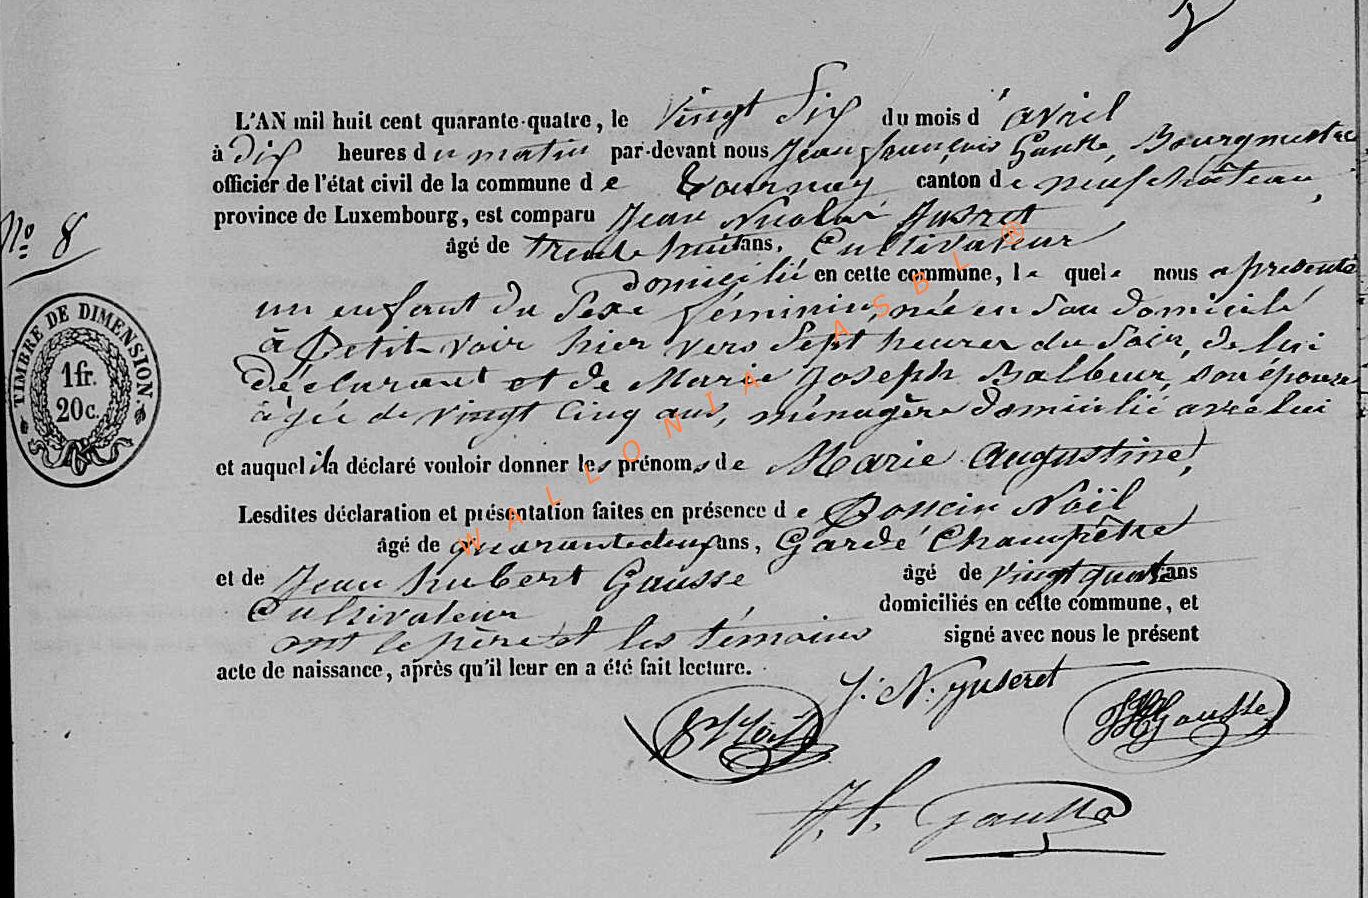 L'AN mil huit cent quarante-quatre, le vingt Six du mois d'avril
à dix heures du matin par-devant nous Jean françois Gousse, Bourgmestre
officier de l'état civil de la commune de Tournay canton de neufchâteau,
province de Luxembourg, est comparu Jean Nicolas Juseret
N° 8
âgé de trente huit ans, Cultivateur
domicilié en cette commune, le quel nous a présenté
un enfant du Sexe féminin, née en son domicile
à Petit-voir hier vers Sept heures du Soir, de lui
déclarant et de Marie Joseph Balbeur, son épouse
âgée de vingt Cinq ans, ménagère domicilié avec lui
et auquel il a déclaré vouloir donner les prénoms de Marie Augustine,
Lesdites déclaration et présentation faites en présence de Poncin Noël
âgé de quarante deux ans, Garde Champêtre
et de Jean hubert Gousse âgé de vingt quatre ans
Cultivateur domiciliés en cette commune, et
ont le père et les témoins signé avec nous le présent
acte de naissance, après qu'il leur en a été fait lecture.
J. N. Juseret
Noël
JH Gousse
J. f. Gousse
TIMBRE DE DIMENSION.
1 fr.
20 c.
WALLONIA ASBL ®